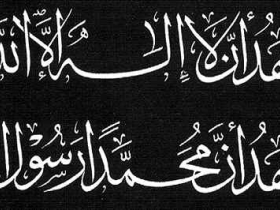 هدُ أنْ لَا إِلهَ إِلَّا الله
هدُ أنَّ مُحَمَّدًا رَسُوْلُ ا